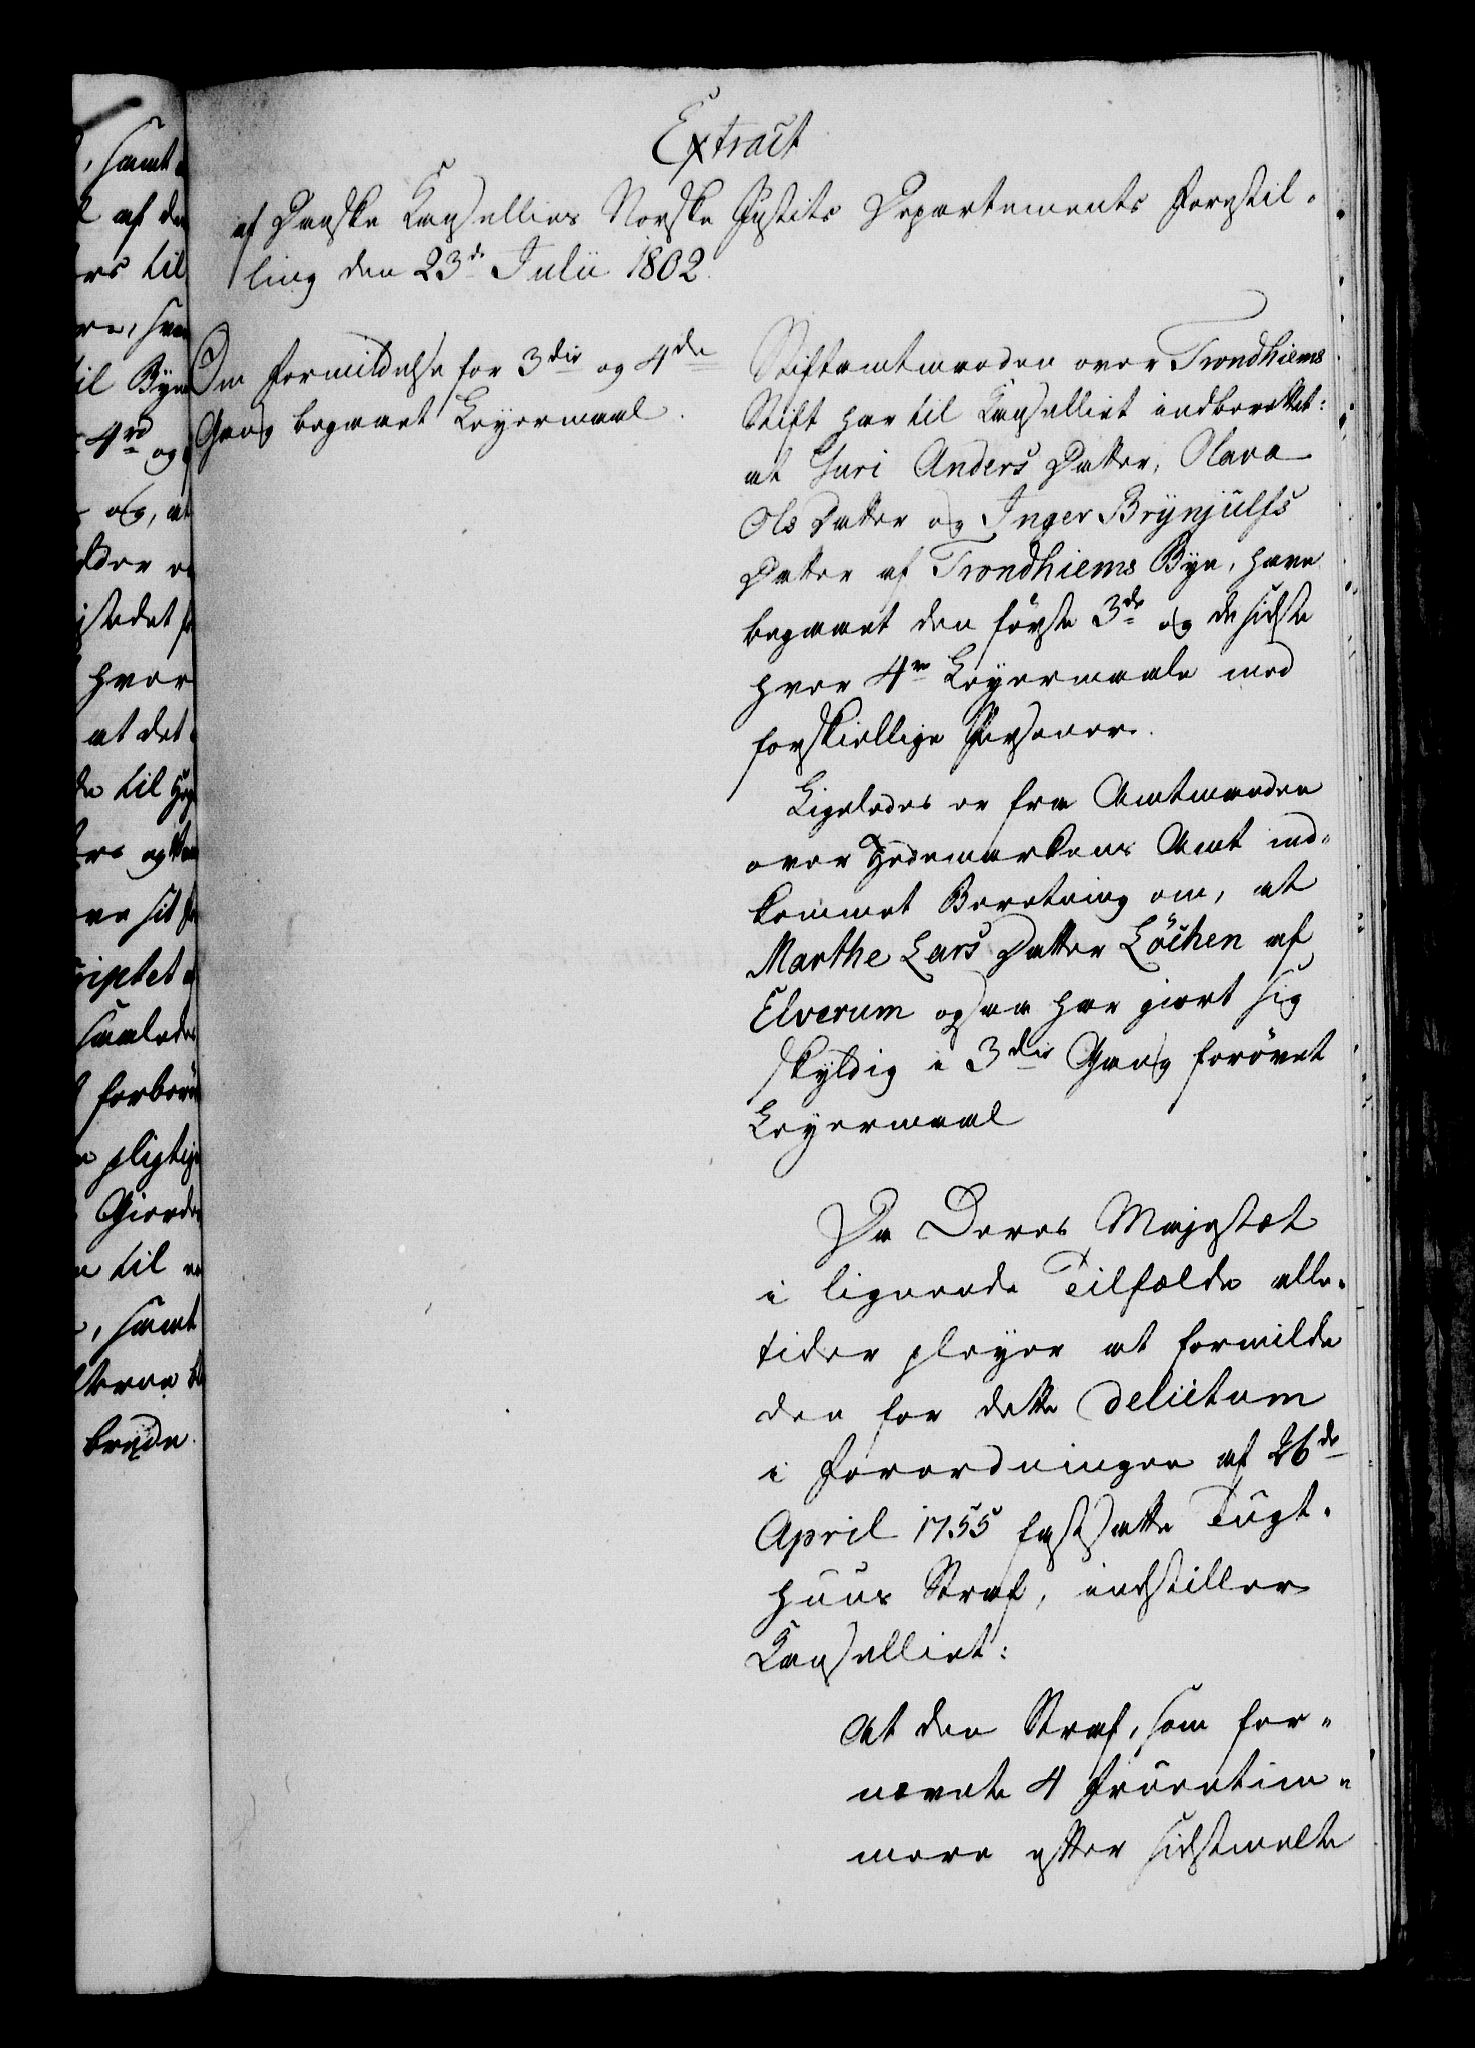 Extract
af Danske Cancelliets Norske Justits Departements Forestil-
ling den 23de Julii 1802.
Om Formildelse for 3die og 4de
Gang begaaet Leyermaal.
Stiftamtmanden over Trondhiems
Stift har til Cancelliet indberettet:
at Guri Anders Datter, Olava
Ols Datter og Inger Brÿnjulfs
Datter af Trondhiems Bye, have
begaaet den förste 3de og de sidste
hver 4re Leyermaale med
forskiellige Personer.
Ligeledes er fra Amtmanden
over Hedemarkens Amt ind-
kommet Beretning om, at
Marthe Lars Datter Löchen af
Elverum ogsaa har giort sig
skyldig i 3die Gang forövet
Leyermaal
Da Deres Majestæt
i lignende Tilfælde alle-
tider pleyer at formilde
den for dette Delictum
i Forordningen af 26de
April 1755 fastsatte Tugt-
huus Straf, indstiller
Cancelliet:
at den Straf, som for-
nævnte 4 Fruentim-
mere efter sidstmelte
, samt
af den
til
til Bye
4re og
og, at
istedet
hver
at det
til
og
sit
saaledes
pligtige
til
, samt